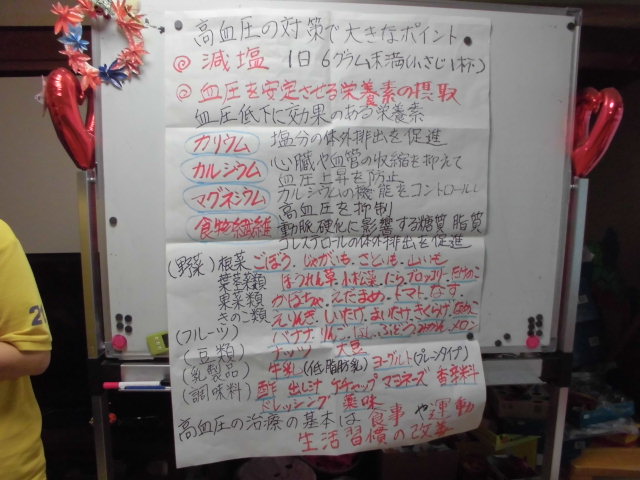 高血圧の対策で大きなポイント
@ 減塩 1日6グラム未満(小さじ1杯)
@ 血圧を安定させる栄養素の摂取
血圧低下に効果のある栄養素
カリウム 塩分の体外排出を促進
カルシウム 心臓や血管の収縮を抑えて
血圧上昇を防止
マグネシウム カルシウムの機能をコントロールし
高血圧を抑制
食物繊維 動脈硬化に影響する糖質 脂質
コレステロールの体外排出を促進
(野菜) 根菜 ごぼう、じゃがいも、さといも、山いも
葉茎菜類 ほうれん草 小松菜、にら、ブロッコリー、たけのこ
果菜類 かぼちゃ、えだまめ、トマト、なす
きのこ類 えりんぎ、しいたけ、まいたけ、きくらげ、なめこ
(フルーツ) バナナ、りんご、なし、ぶどう、みかん、メロン
(豆類) ナッツ 大豆
(乳製品) 牛乳(低脂肪乳) ヨーグルト(プレーンタイプ)
(調味料) 酢 出し汁 ケチャップ マヨネーズ 香辛料
ドレッシング 薬味
高血圧の治療の基本は食事や運動
生活習慣の改善